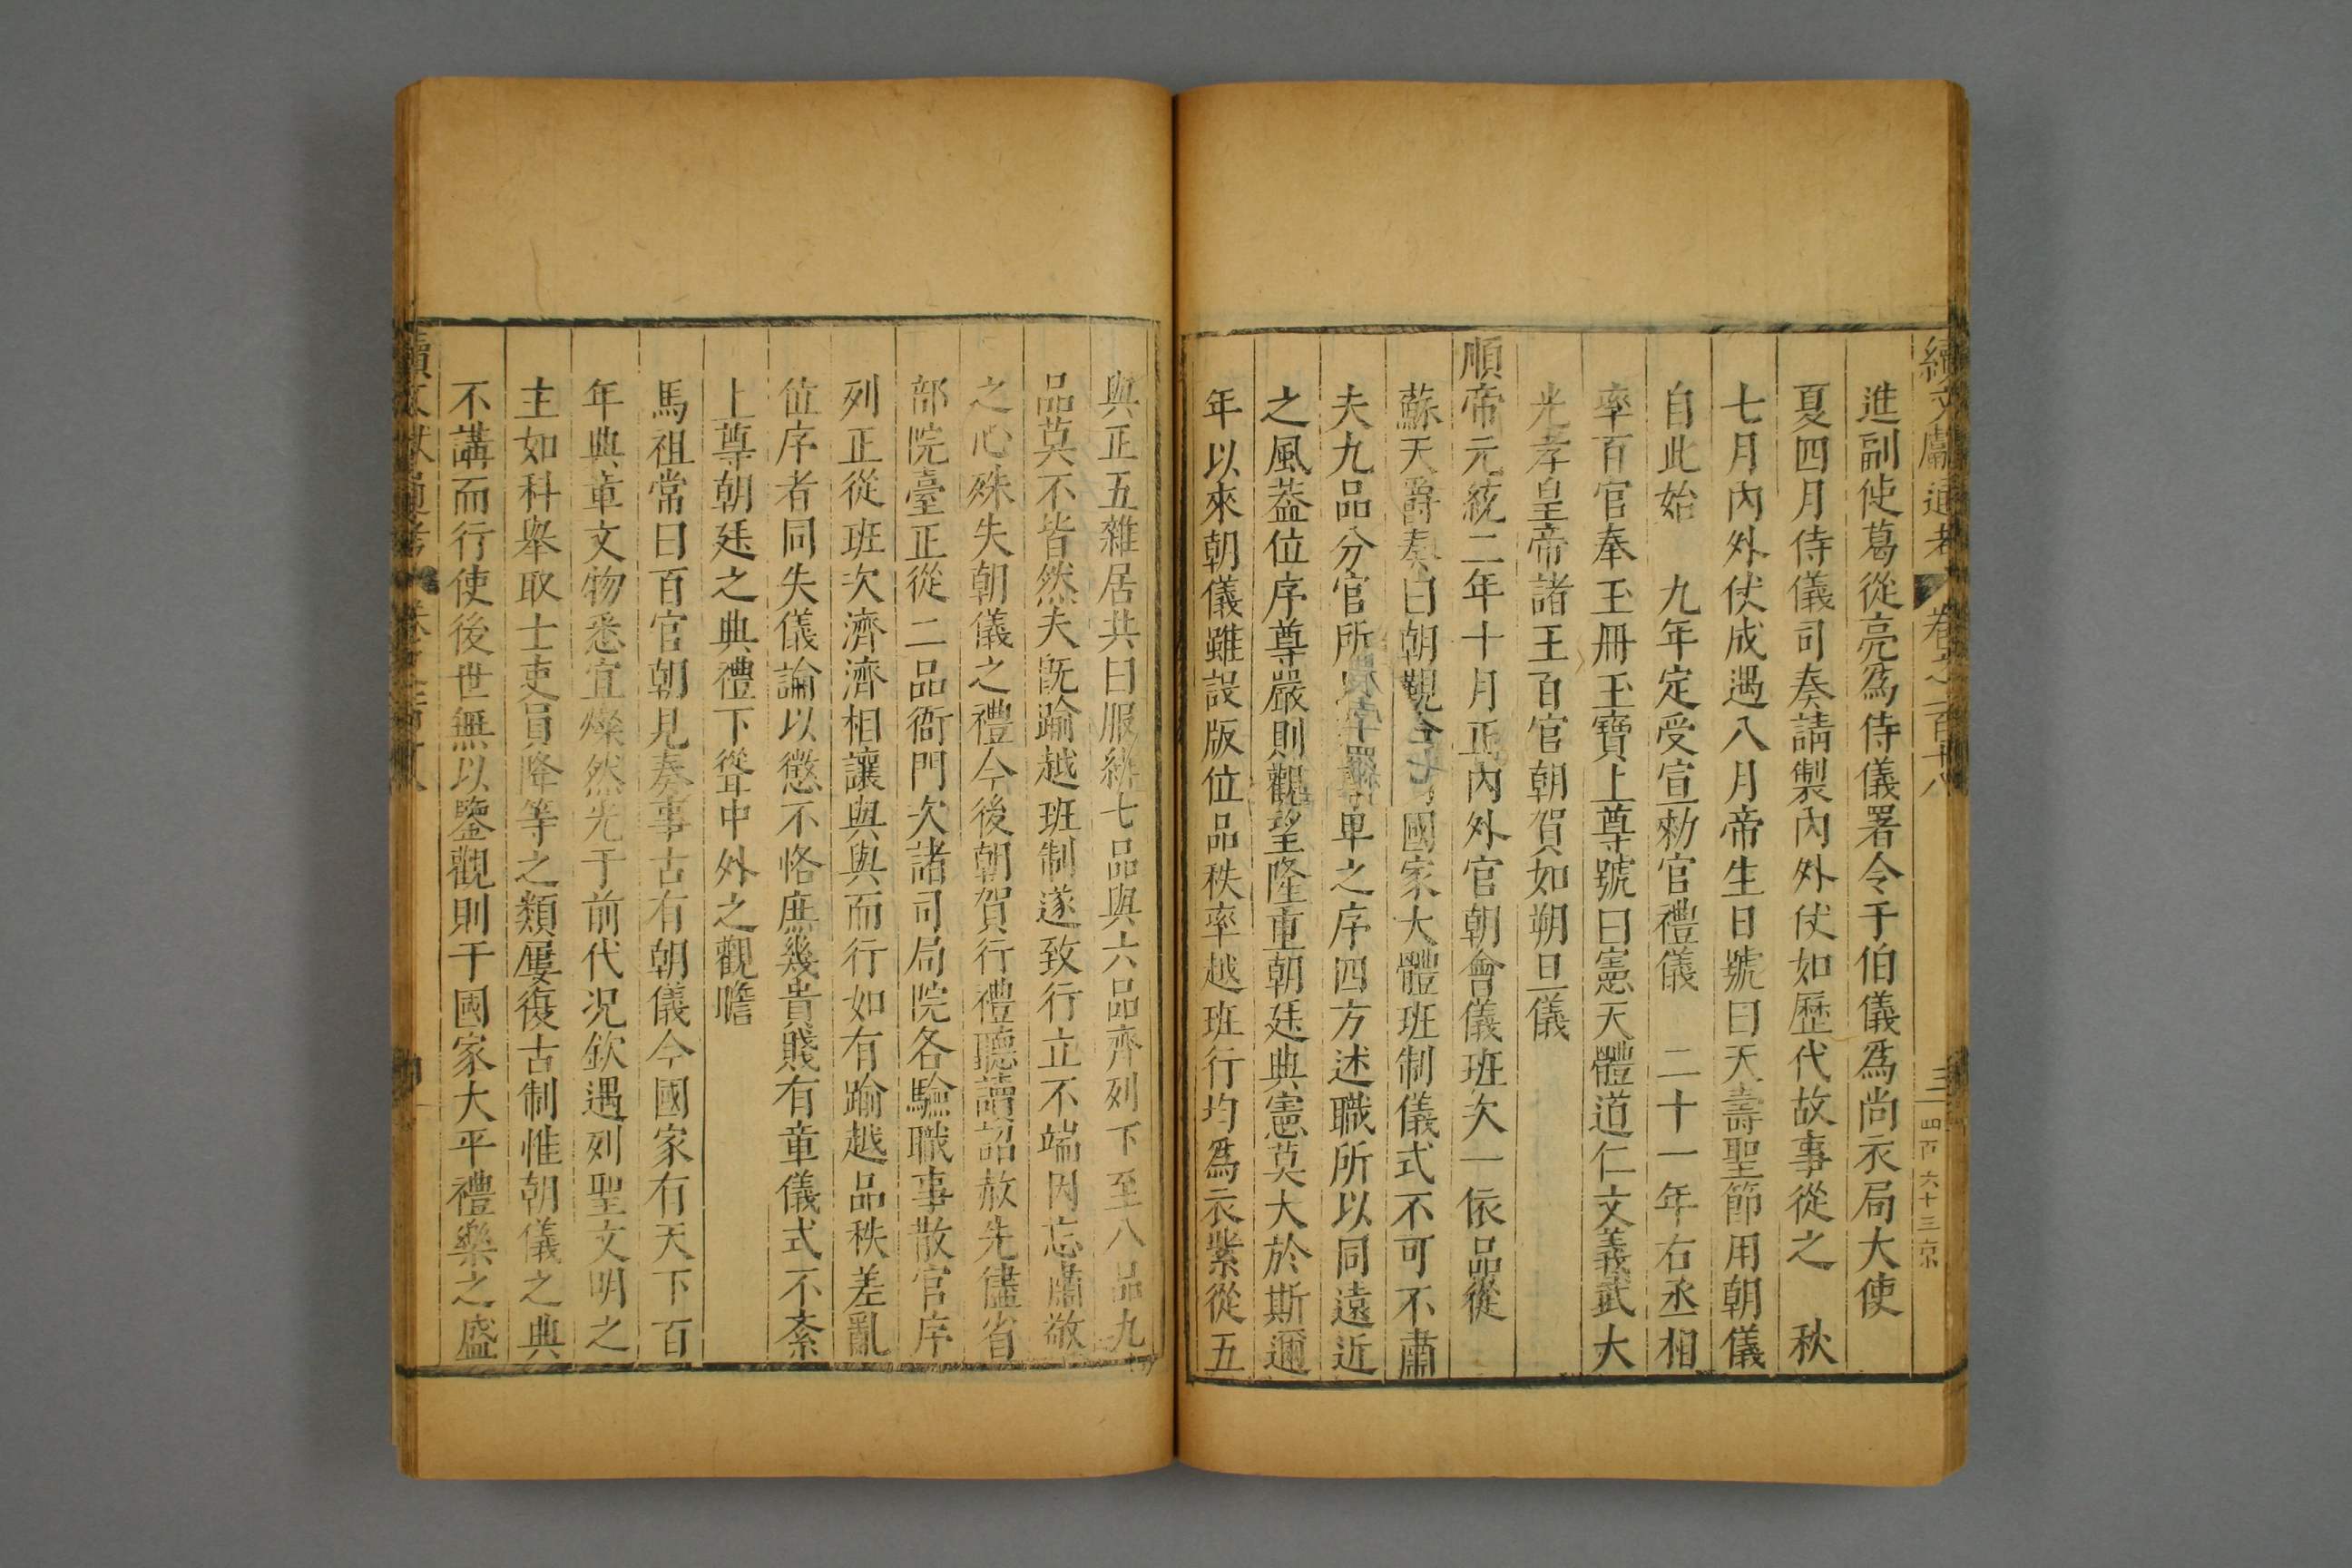 續文獻通考 卷之一百十八 三 四百六十三
進副使葛從亮爲侍儀署令于伯儀爲尚衣局大使
夏四月侍儀司奏請製內外仗如歷代故事從之 秋
七月內外仗成遇八月帝生日號曰天壽聖節用朝儀
自此始 九年定受宣勑官禮儀 二十一年右丞相
率百官奉玉冊玉寶上尊號曰憲天體道仁文義武大
光孝皇帝諸王百官朝賀如朔旦儀
順帝元統二年十月正內外官朝會儀班次一依品從
蘇天爵奏曰朝覲 國家大體班制儀式不可不肅
夫九品分官所 卑之序四方述職所以同遠近
之風蓋位序尊嚴則觀望隆重朝廷典憲莫大於斯邇
年以來朝儀雖設版位品秩率越班行均爲衣紫從五
與正五雜居共曰服緋七品與六品齊列下至八品九
品莫不皆然夫旣踰越班制遂致行立不端因忘肅敬
之心殊失朝儀之禮今後朝賀行禮聽讀詔赦先儘省
部院臺正從二品衙門次諸司局院各驗職事散官序
列正從班次濟濟相讓與與而行如有踰越品秩差亂
位序者同失儀論以懲不恪庶幾貴賤有章儀式不紊
上尊朝廷之典禮下聳中外之觀瞻
馬祖常曰百官朝見奏事古有朝儀今國家有天下百
年典章文物悉宜燦然光于前代况欽遇列聖文明之
主如科舉取士吏員降等之類屢復古制惟朝儀之典
不講而行使後世無以鑒觀則于國家大平禮樂之盛